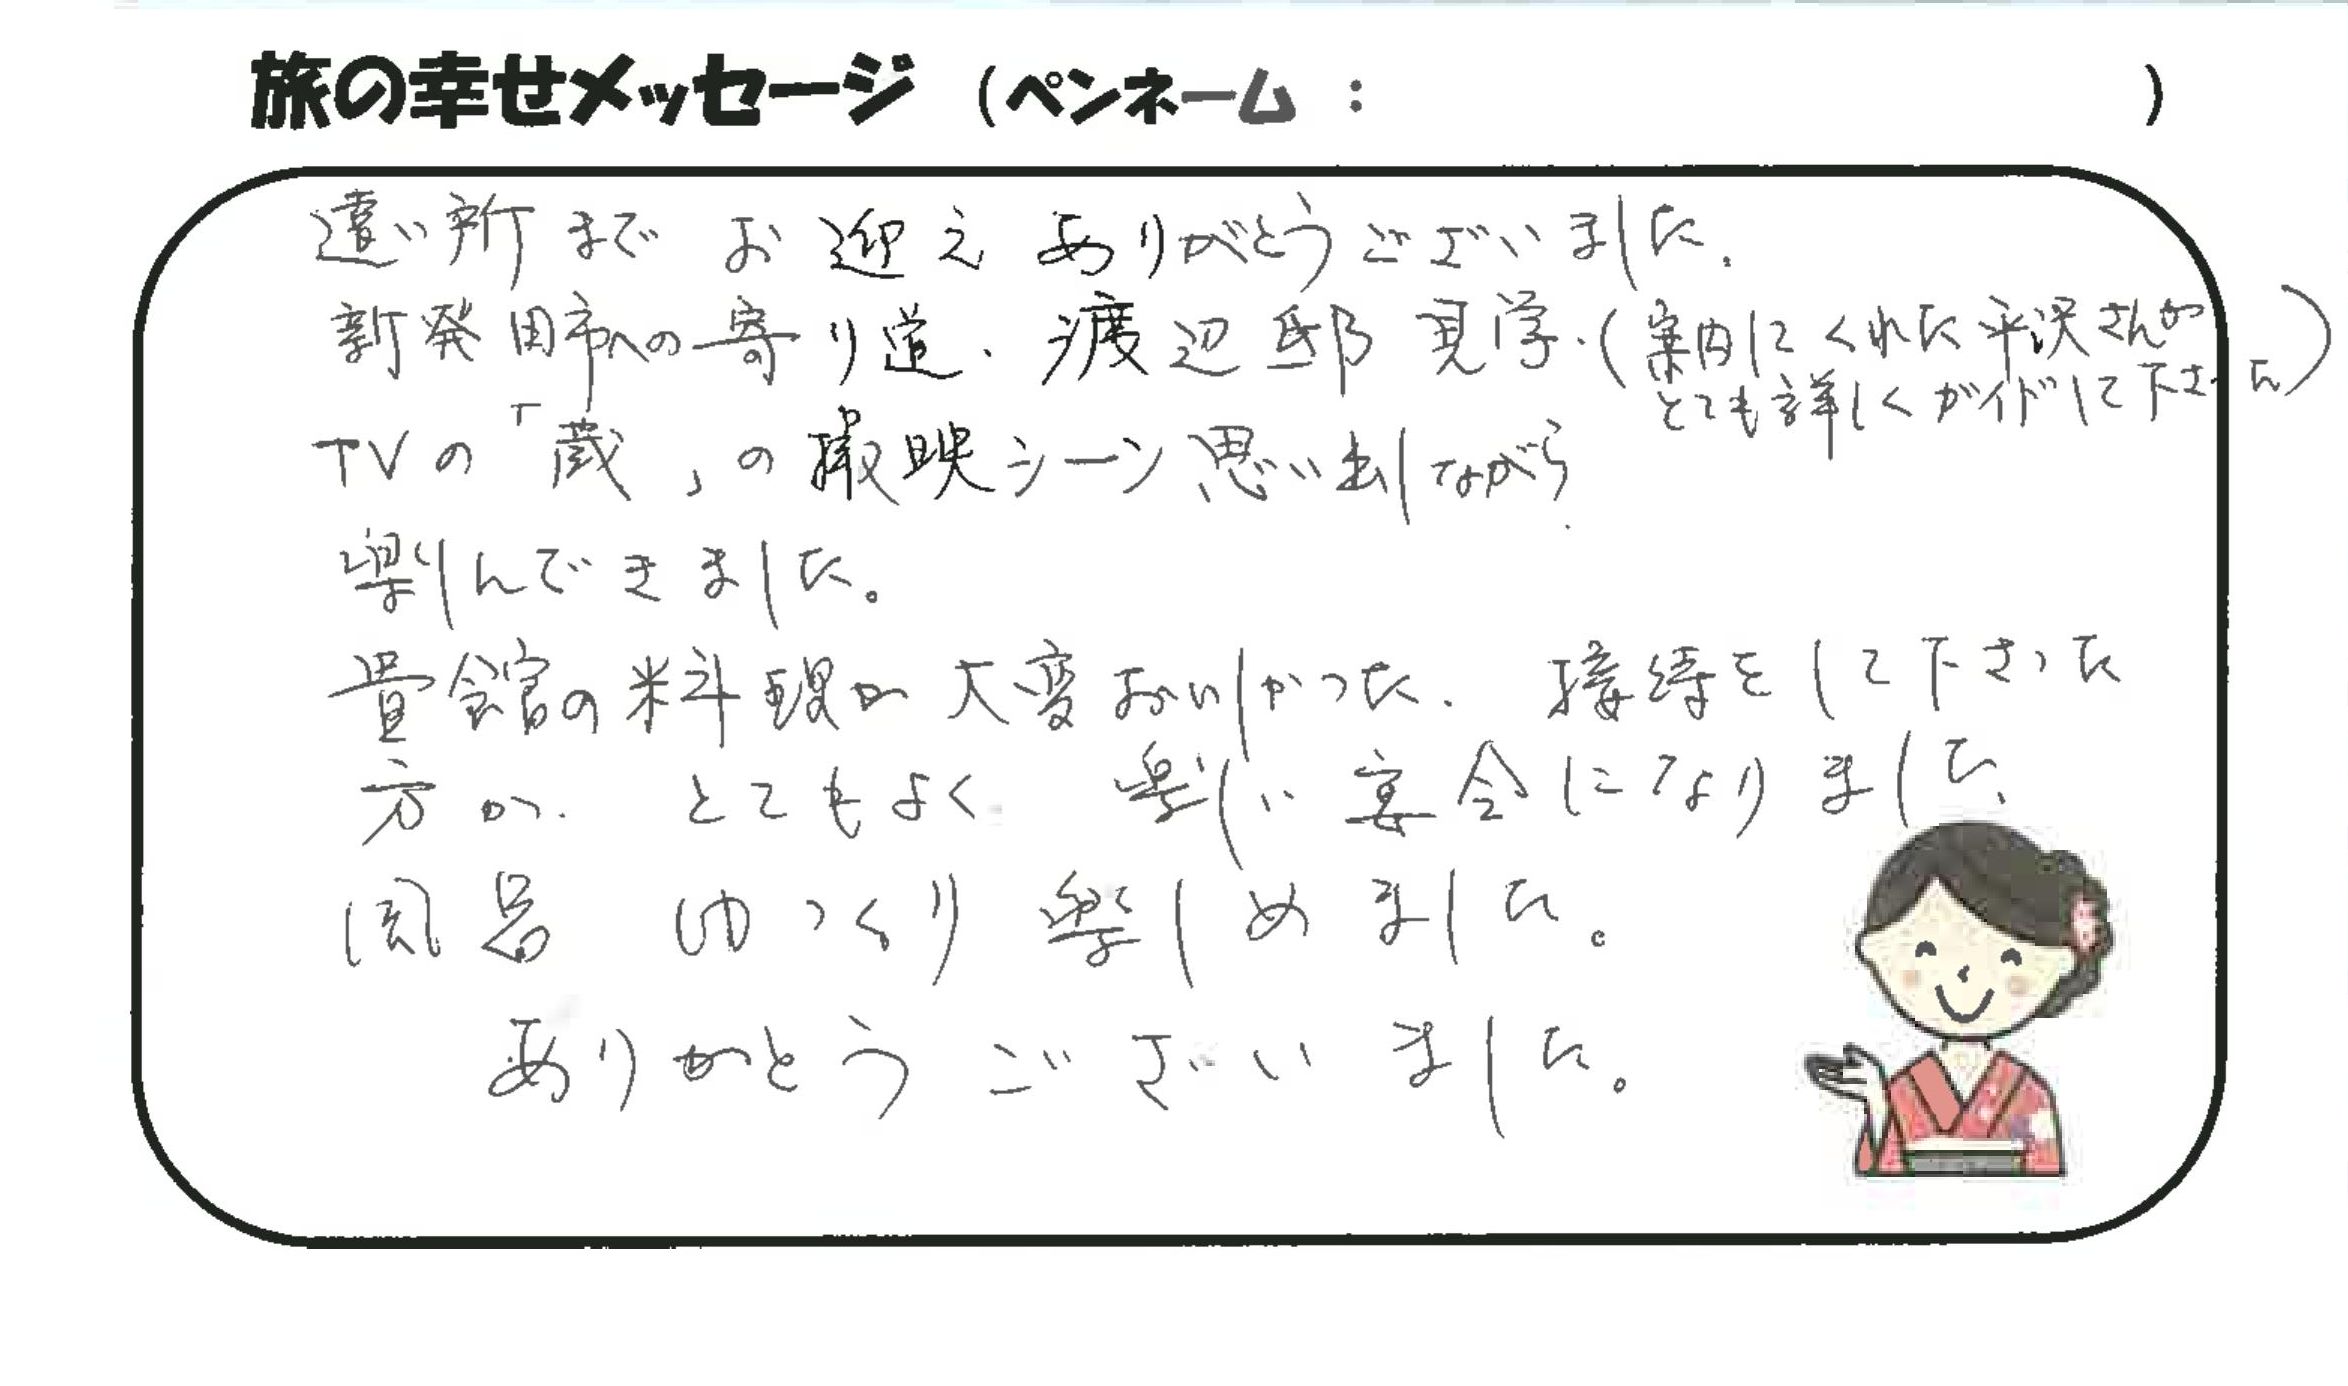 旅の幸せメッセージ (ペンネーム : )
遠い所まで お迎え ありがとうございました.
新発田市への寄り道. 渡辺邸見学.(案内してくれた平沢さんが
とても詳しくガイドして下さった)
TVの「蔵」の撮映シーン思い出しながら
楽しんできました。
貴館の料理が大変おいしかった. 接待をして下さった
方が. とてもよく 楽しい宴会になりました.
風呂 ゆっくり楽しめました。
ありがとうございました。